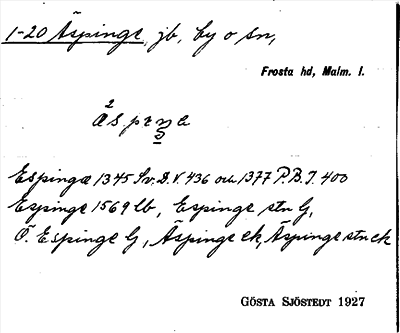 1-20 Äspinge, jb, by o sn,
Frosta hd, Malm. l.
2
Espinge 1345 Sv. D. V. 436 och 1377 P.B.J. 400
Espinge 1569 lb, Espinge stn G,
Ö. Espinge G, Äspinge ek, Äspinge stn ek
GÖSTA SJÖSTEDT 1927